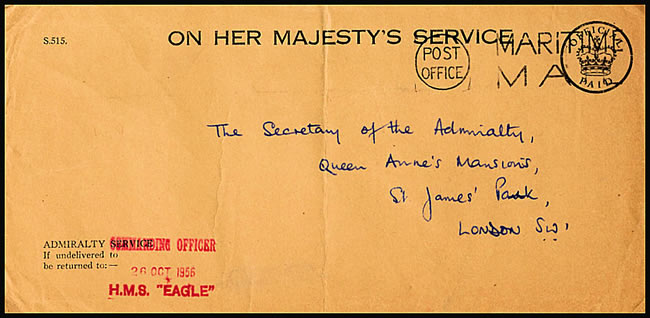 S.515.
ON HER MAJESTY'S SERVICE
POST
OFFICE
MARITIM
MA
OFFICIAL
PAID
The Secretary of the Admiralty,
Queen Anne's Mansions,
St James' Park,
LONDON SW1
ADMIRALTY SERVICE
If undelivered to
be returned to:—
COMMANDING OFFICER
26 OCT 1956
H.M.S. "EAGLE"